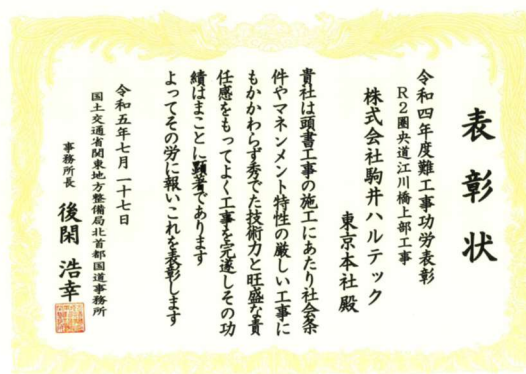 表彰状
令和四年度難工事功労表彰
R2圏央道江川橋上部工事
株式会社駒井ハルテック
東京本社殿
貴社は頭書工事の施工にあたり社会条
件やマネンメント特性の厳しい工事に
もかかわらず秀でた技術力と旺盛な責
任感をもってよく工事を完遂しその功
績はまことに顕著であります
よってその労に報いこれを表彰します
令和五年七月二十七日
国土交通省関東地方整備局北首都国道事務所
事務所長 後閑浩幸